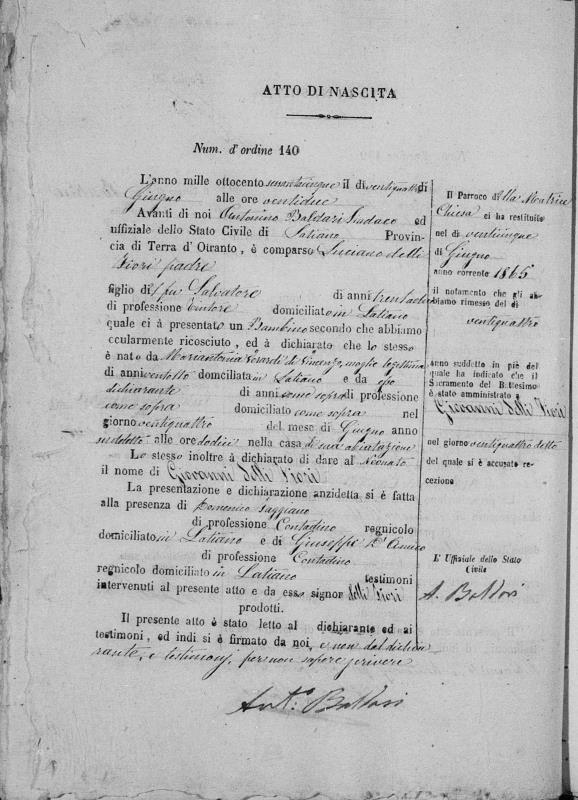 ATTO DI NASCITA
Num. d'ordine 140
L'anno mille ottocento sessantacinque il di ventiquattro di
Giugno alle ore ventidue
Avanti di noi Antonino Baldari Sindaco ed
uffiziale dello Stato Civile di Latiano Provin-
cia di Terra d'Otranto, è comparso Luciano delli
Fiori padre
figlio di fu Salvatore di anni trentadue
di professione domiciliato in Latiano
quale ci à presentato un Bambino secondo che abbiamo
ccularmente ricosciuto, ed à dichiarato che lo stesso
è nato da Mariantonia di Vincenzo, moglie legittima
di anni ventotto domiciliata in Latiano e da esso
dichiarante di anni come sopra di professione
come sopra domiciliato come sopra nel
giorno ventiquattro del mese di Giugno anno
suddetto alle ore dodici nella casa di sua abitazione
Lo stesso inoltre à dichiarato di dare al Neonato
il nome di Giovanni delli Fiori
La presentazione e dichiarazione anzidetta si è fatta
alla presenza di Domenico
di professione Contadino regnicolo
domiciliato in Latiano e di Giuseppe D'Amico
di professione Contadino
regnicolo domiciliato in Latiano testimoni
intervenuti al presente atto e da esso signor delli Fiori
prodotti.
Il presente atto è stato letto al dichiarante ed ai
testimoni, ed indi si è firmato da noi, e non dal dichia
rante, e testimonj, per non sapere scrivere
Ant.o Baldari
Il Parroco della Matrice
Chiesa ci ha restituito
nel di venticinque
di Giugno
anno corrente 1865
il notamento che gli ab-
biamo rimesso del di
ventiquattro
anno suddetto in piè del
quale ha indicato che il
Sacramento del Battesimo
è stato amministrato a
Giovanni delli Fiori
nel giorno ventiquattro detto
del quale si è accusato re-
cezione
L' Uffiziale dello Stato
Civile
A. Baldari